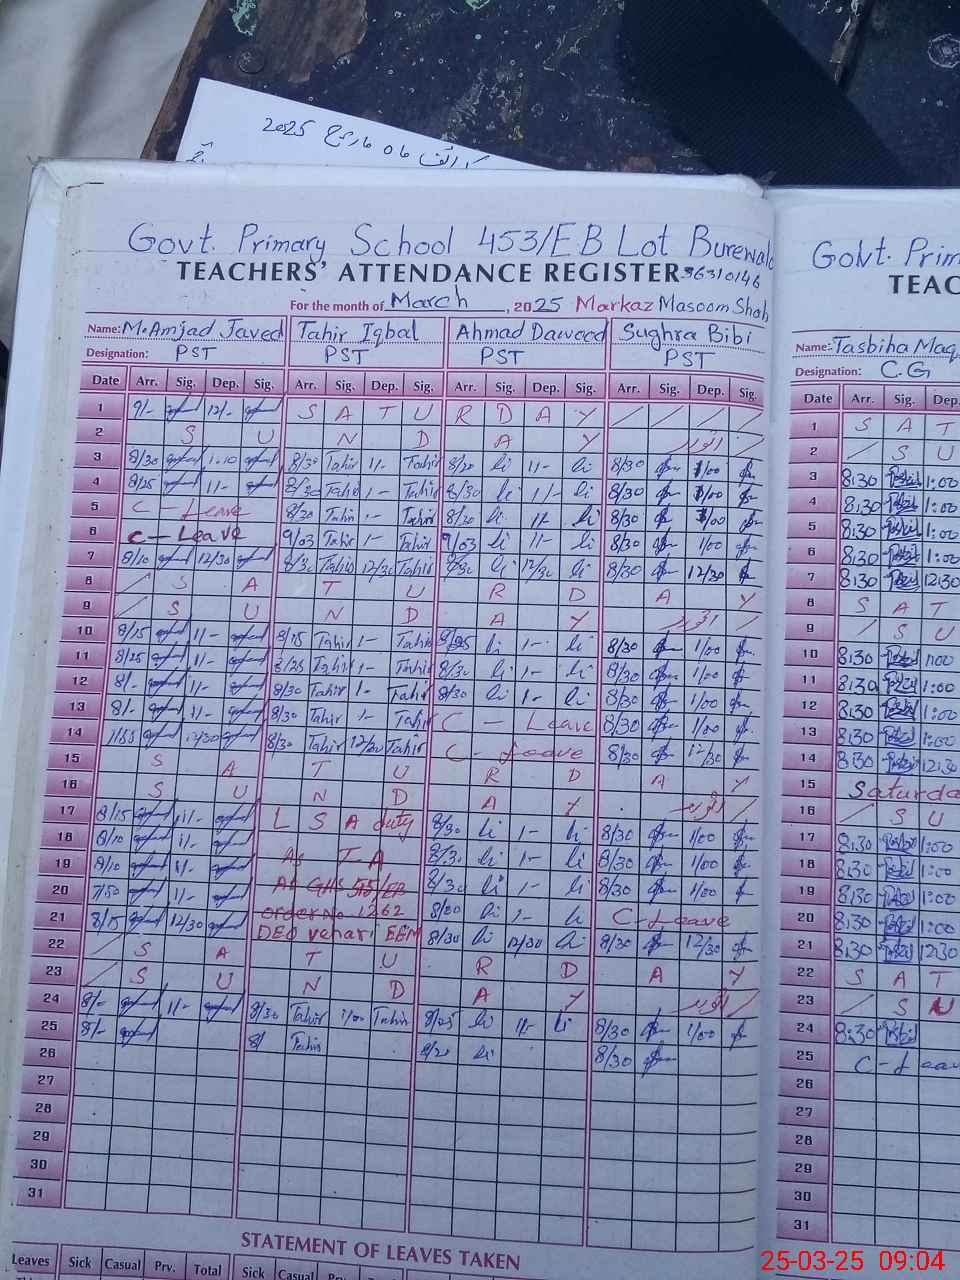 2025 مارچ 06
Govt. Primary School 453/EB Lot Burewala
TEACHERS' ATTENDANCE REGISTER 36310146
For the month of March, 2025 Markaz Masoom Shah
Name: M.Amjad Javed Tahir Iqbal Ahmad Daweed Sughra Bibi
Designation: PST PST PST PST
Date Arr. Sig. Dep. Sig. Arr. Sig. Dep. Sig. Arr. Sig. Dep. Sig. Arr. Sig. Dep. Sig.
1 9/- 12/- S A T U R D A Y
2 S U N D A Y اتوار
3 8/30 1-10 8/30 Tahir 1/- Tahir 8/20 li 11- li 8/30 1/00
4 8/25 11- 8/30 Tahir 1- Tahir 8/30 li 1/- li 8/30 1/00
5 C - Leave 8/30 Tahir 1- Tahir 8/30 li 11- li 8/30 1/00
6 C - Leave 9/03 Tahir 1- Tahir 9/03 li 11- li 8/30 1/00
7 8/10 12/30 8/30 Tahir 12/30 Tahir 8/30 li 12/30 li 8/30 12/30
8 S A T U R D A Y
9 S U N D A Y اتوار
10 8/15 1/- 8/15 Tahir 1- Tahir li 1-- li 8/30 1/00
11 8/25 1/- 8/25 Tahir 1- Tahir 8/30 li 1- li 8/30 1/00
12 8/- 1/- 8/30 Tahir 1- Tahir 8/30 li 1- li 8/30 1/00
13 8/- 1/- 8/30 Tahir 1- Tahir C - Leave 8/30 1/00
14 12/30 8/30 Tahir 12/30 Tahir C - Leave 8/30 12/30
15 S A T U R D A Y
16 S U N D A Y اتوار
17 8/15 1/- L S A duty 8/30 li 1- li 8/30 1/00
18 8/10 1/- As T-A 8/30 li 1- li 8/30 1/00
19 8/10 1/- At GHS 515/EB 8/30 li 1- li 8/30 1/00
20 7/50 1/- order No 1262 8/00 li 1- li C-Leave
21 8/15 12/30 DEO vehari EEM 8/30 li 12/30 li 8/30 12/30
22 S A T U R D A Y
23 S U N D A Y اتوار
24 8/- 1/- 8/30 Tahir 1/00 Tahir 8/25 li 11- li 8/30 1/00
25 8/- 8/ Tahir 8/20 li 8/30
26
27
28
29
30
31
STATEMENT OF LEAVES TAKEN
Leaves Sick Casual Prv. Total Sick Casual Prv. Total
Govt. Prim
TEAC
Name: Tasbiha Maq
Designation: C.G
Date Arr. Sig. Dep.
1 S A T
2 S U
3 8:30 1:00
4 8:30 1:00
5 8:30 1:00
6 8:30 1:00
7 8:30 12:30
8 S A T
9 S U
10 8:30 1:00
11 8:30 1:00
12 8:30 1:00
13 8:30 1:00
14 8:30 12:30
15 Saturda
16 S U
17 8:30 1:00
18 8:30 1:00
19 8:30 1:00
20 8:30 1:00
21 8:30 12:30
22 S A T
23 S N
24 8:30
25 C - Leave
26
27
28
29
30
31
25-03-25 09:04